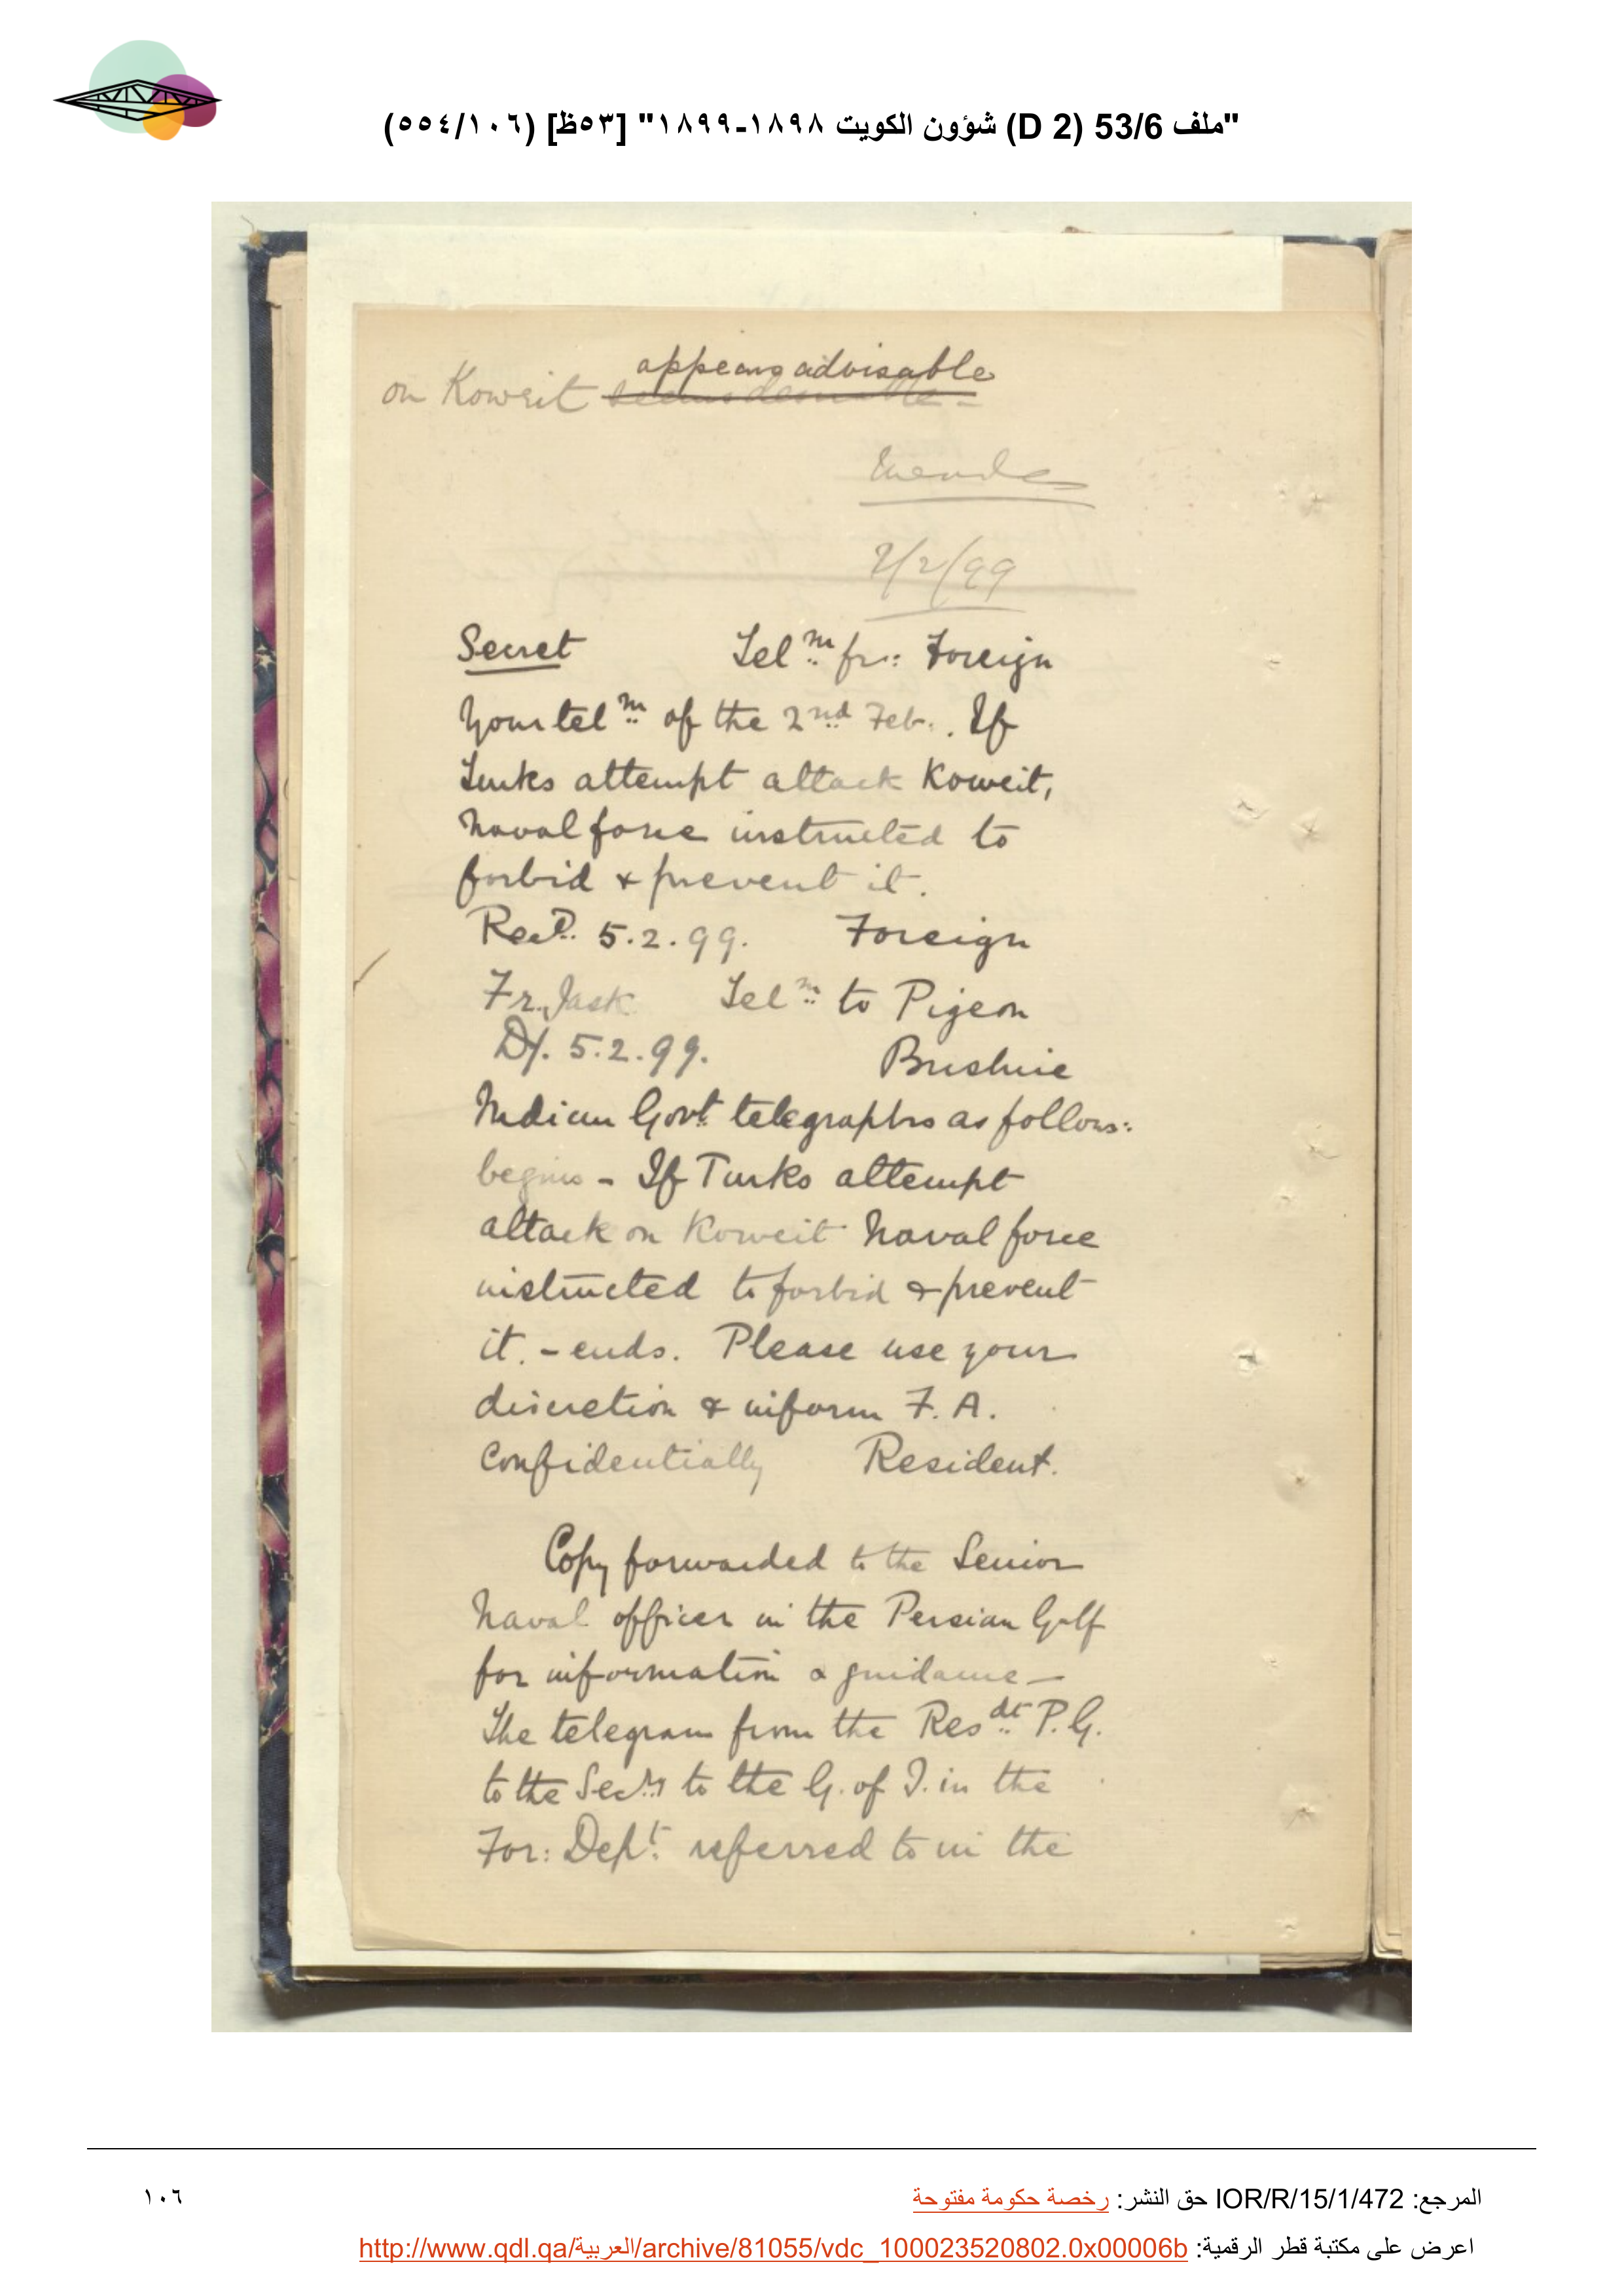 "ملف 53/6 (D 2) شؤون الكويت ١٨٩٨-١٨٩٩" [٥٣ظ] (٥٥٤/١٠٦)
appears advisable
on Koweit seems desirable -
Meade
2/99
Secret Tel.m fr: Foreign
Your tel.m of the 2nd Feb. . If
Turks attempt attack Koweit,
Naval force instructed to
forbid & prevent it.
Recd. 5.2.99. Foreign
Fr. Jask Tel.m to Pigeon
D/. 5.2.99. Bushire
Indian Govt. telegraphs as follows:
begins - If Turks attempt
attack on Koweit Naval force
instructed to forbid & prevent
it. - ends. Please use your
discretion & inform F. A.
Confidentially Resident.
Copy forwarded to the Senior
Naval officer in the Persian Gulf
for information & guidance -
The telegram from the Resdt. P. G.
to the Secry to the G. of I. in the
For: Dept. referred to in the
المرجع: IOR/R/15/1/472 حق النشر: رخصة حكومة مفتوحة
١٠٦
اعرض على مكتبة قطر الرقمية: http://www.qdl.qa/العربية/archive/81055/vdc_100023520802.0x00006b